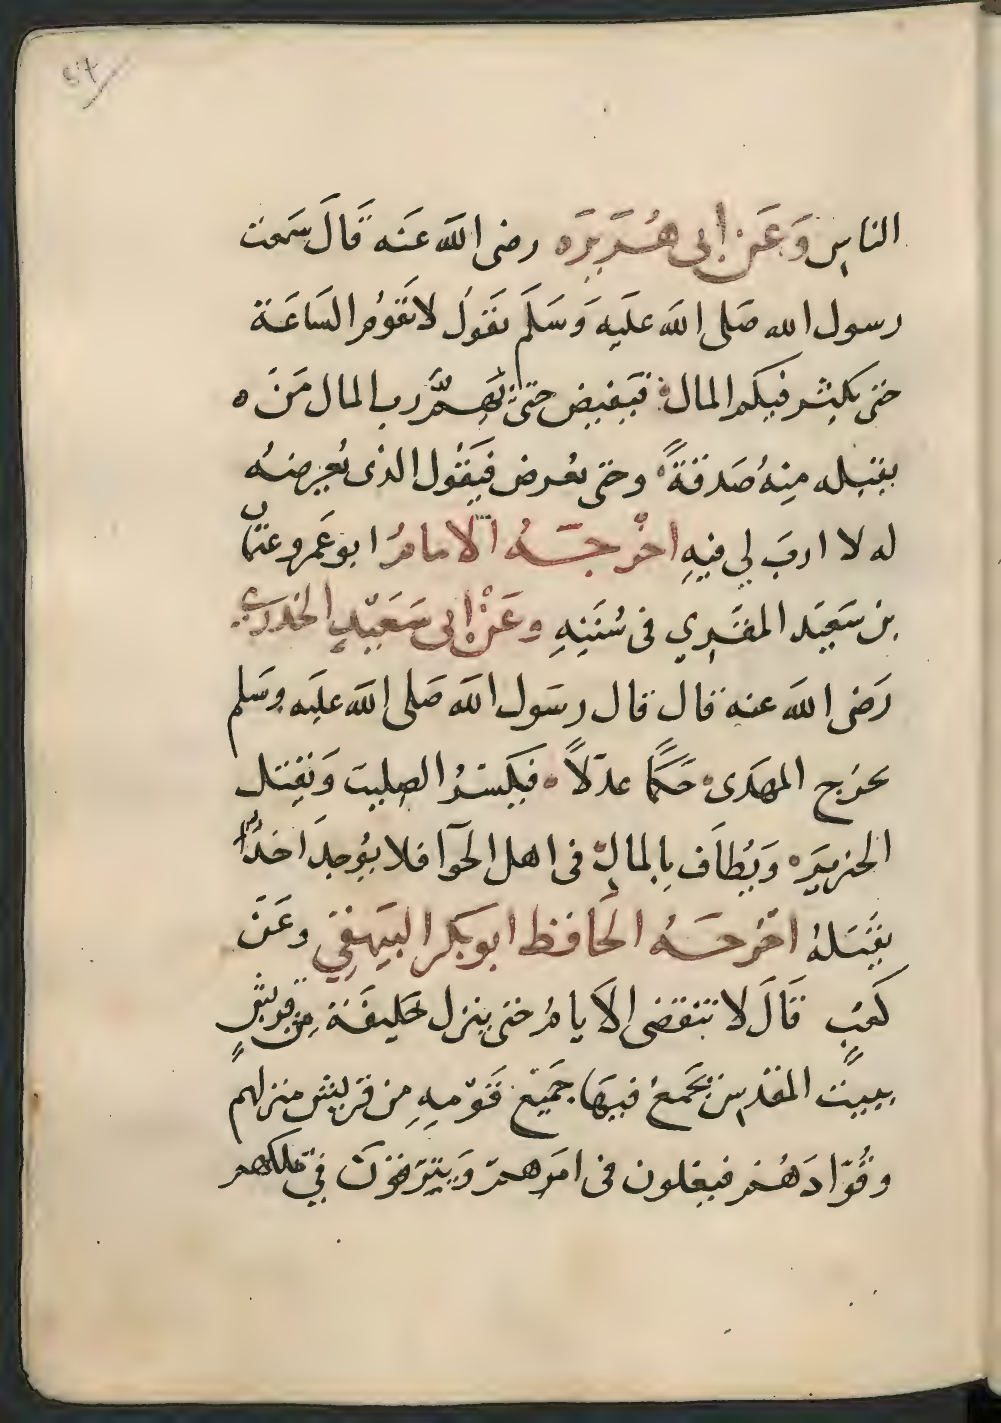 الناس وَعَن ابى هُرَيرَه رضى الله عَنه قَالَ سَمعت
رسول الله صَلى الله عليَه وَسَلَم يَقولُ لا تَقومُ السَاعَة
حتى يكثر فيكم المال فيَفيض حتى يُهمَّ رب المال مَن
يقبله مِنهُ صَدقةً وحتى يعرض فيَقُول الذى يُعرِضهُ
له لا ارَبَ لي فيهِ اخرجَهُ الامامُ ابو عَمرو عثمان
بن سَعيَد المقرِي فى سُنَنِهِ وعَنْ ابى سَعَيْدٍ الخدري
رَضى الله عنه قال قال رسَول الله صَلى الله عليَه وسَلم
يخرَج المهدَى حَكَمًا عدلاً فيَكسَرُ الصليبَ وَيقتل
الخنزيرَ وَيُطاَف بالمالِ فى اهل الحوآ فلا يوُجدَ احَدٌ
يقبَلهُ اخرجَهُ الحَافظ ابو بَكر البَيهقِي وعَن
كَعبٍ قَالَ لا تنقضى الاَيامُ حتى ينزل خليفَة مِن قريشٍ
ببيت المقدسِ يَجمعُ فيهَا جَميَع قَوْمِهِ مِن قرَيش منزلهم
وقُوّادَهُم فيغلون فى امرَهم وَيترَفونَ في ملكهم